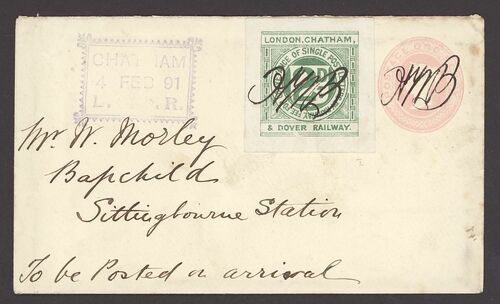 CHATHAM
4 FEB 91
L. R.
LONDON, CHATHAM,
& DOVER RAILWAY.
Mr. W. Morley
Bapchild
Sittingbourne Station
To be Posted on arrival